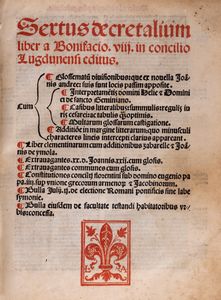 Sextus decretalium
liber a Bonifacio. viij. in concilio
Lugdunensi editus.
Glossemata diuisionibusque ex nouella Joā
nis andree: suis sunt locis passim apposite.
Interpretamētis domini Helie & Domini
ci de sancto Geminiano.
Cum
Casibus litteralibus summulis regulis in
Multarum glossarum castigatione.
Additiōe in margine litterarum quo minusculi
characteres lineis intercepti clarius appareant.
Liber clementinarum cum additionibus zabarelle &
nis de ymola.
Extrauagantes .xx. d. Joannis .xxij. cum glosis.
Extrauagantes communes cum glosis.
Constitutiones concilij florentini sub domino eugenio pa
pa .iiij. sup vnione grecorum armenorum & Jacobinorum.
Bulla Julij. ij. de electione Romani pontificis sine labe
symonie.
Bulla eiusdem de facultate testandi habitatoribus vr
bis concessa.